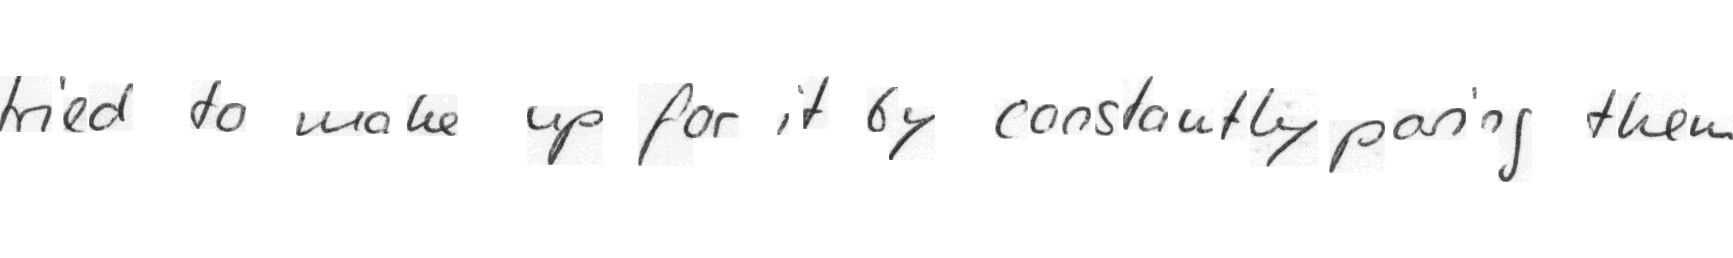 tried to make up for it by constantly paring them